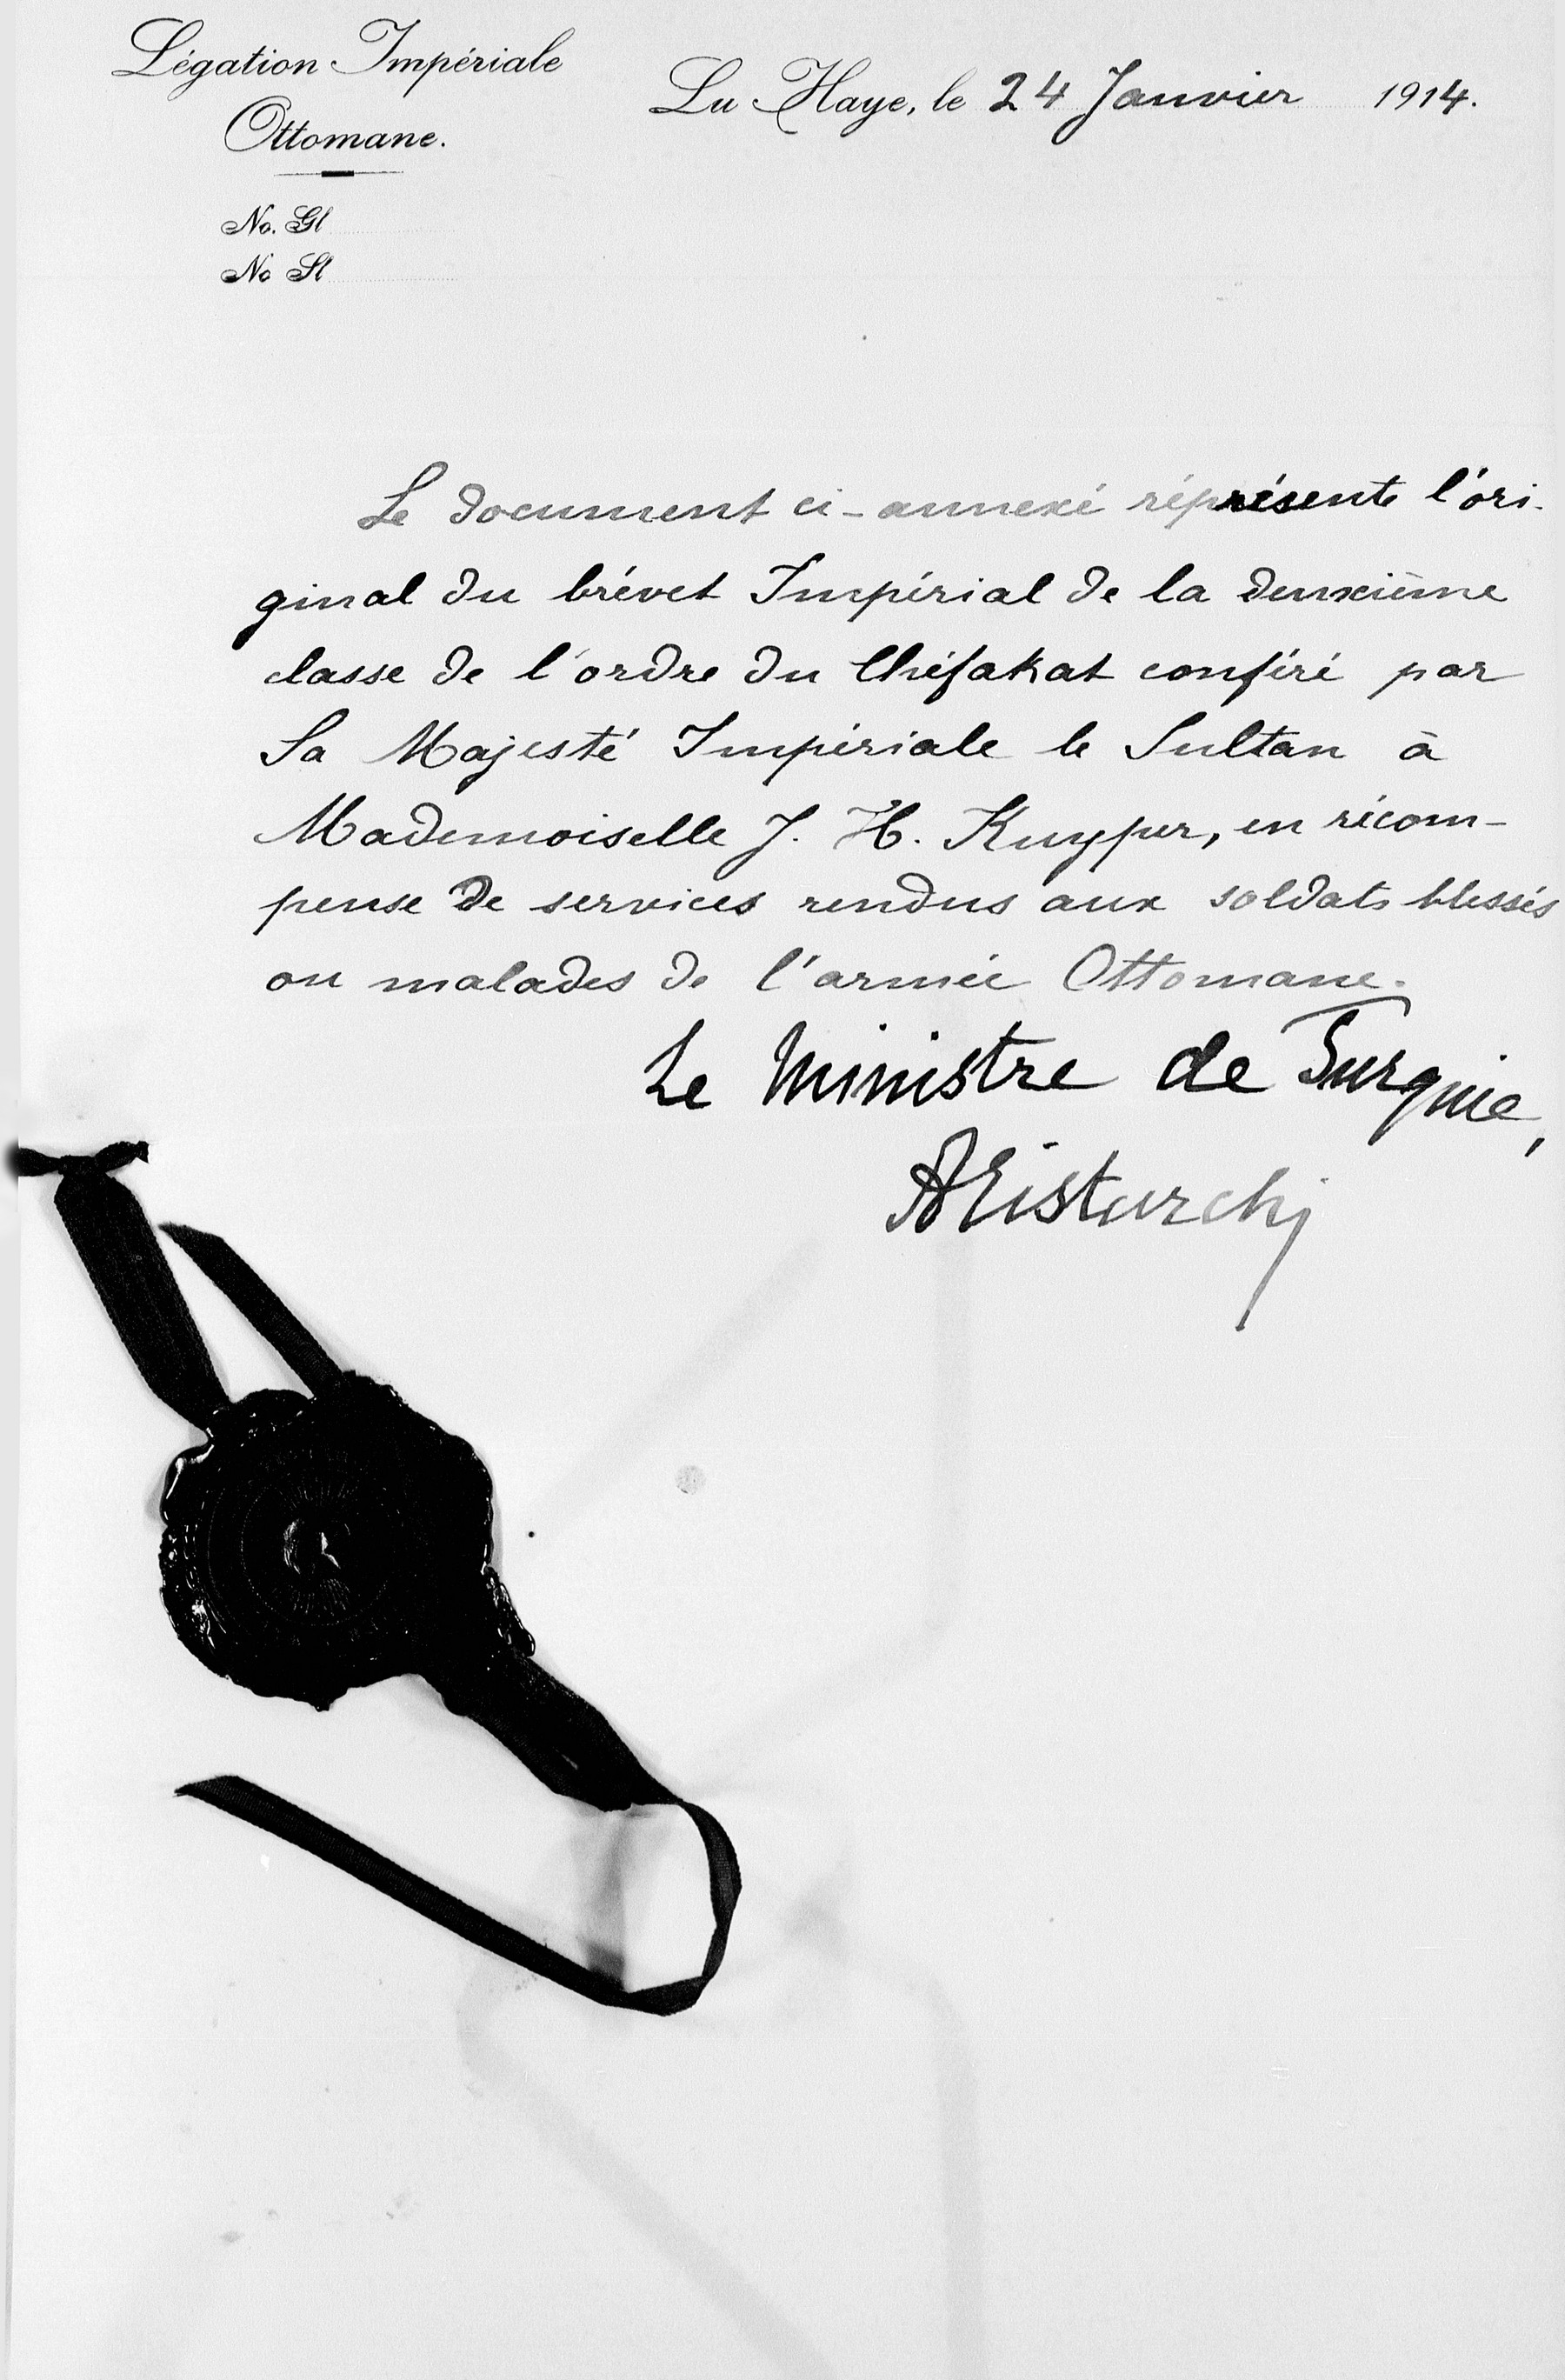 Légation Impériale
Ottomane.
La Haye, le 24 Janvier 1914.
No. Gl
No Sl
Le document ci-annexé réprésente l'ori-
ginal du brévet Impérial de la deuxième
classe de l'ordre du Chéfakat conféré par
Sa Majesté Impériale le Sultan à
Mademoiselle J. H. Kuyper, en récom-
pense de services rendus aux soldats blessés
ou malades de l'armée Ottomane.
Le Ministre de Turquie,
Aristarchi